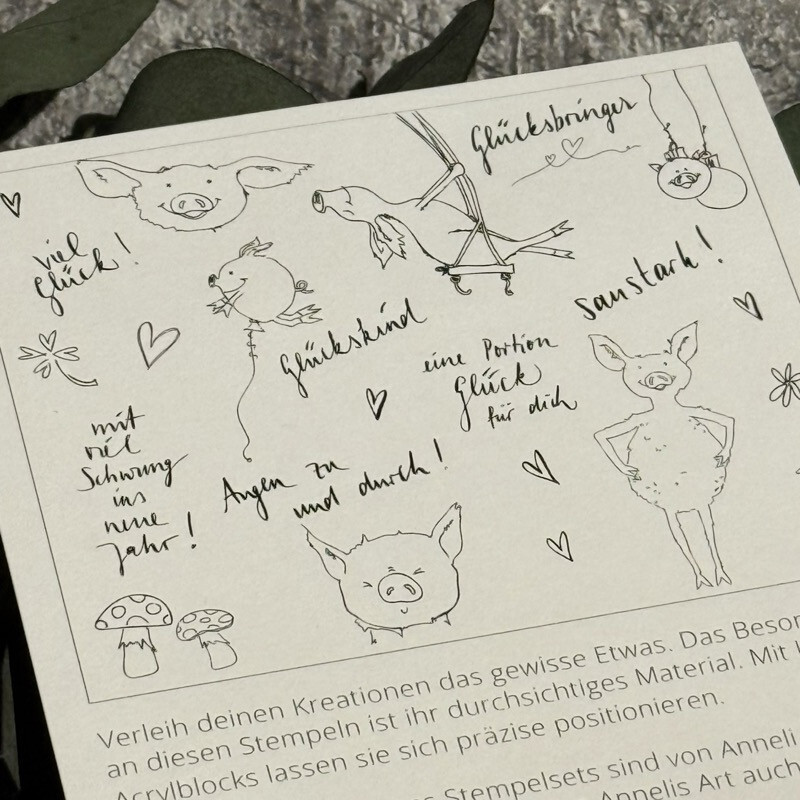 Glücksbringer
viel
Glück!
saustark!
Glückskind
eine Portion
Glück
für dich
mit
viel
Schwung
ins
neue
Jahr!
Augen zu
und durch!
Verleih deinen Kreationen das gewisse Etwas. Das Beson
an diesen Stempeln ist ihr durchsichtiges Material. Mit
Acrylblocks lassen sie sich präzise positionieren.
Stempelsets sind von Anneli
Annelis Art auch